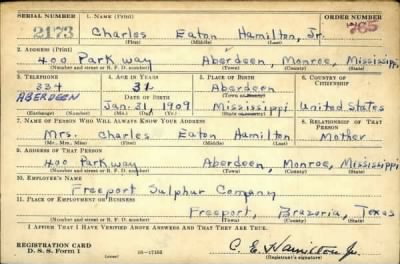 SERIAL NUMBER 1. NAME (Print) ORDER NUMBER
2173 Charles Eaton Hamilton, Jr. 765
(First) (Middle) (Last)
2. ADDRESS (Print)
400 Parkway Aberdeen, Monroe, Mississippi
(Number and street or R. F. D. number) (Town) (County) (State)
3. TELEPHONE 4. AGE IN YEARS 5. PLACE OF BIRTH 6. COUNTRY OF CITIZENSHIP
334 31 Aberdeen
DATE OF BIRTH (Town or county)
ABERDEEN Jan. 31, 1909 Mississippi United States
(Exchange) (Number) (Mo.) (Day) (Yr.) (State or country)
7. NAME OF PERSON WHO WILL ALWAYS KNOW YOUR ADDRESS 8. RELATIONSHIP OF THAT PERSON
Mrs. Charles Eaton Hamilton Mother
(Mr., Mrs., Miss) (First) (Middle) (Last)
9. ADDRESS OF THAT PERSON
400 Parkway Aberdeen, Monroe, Mississippi
(Number and street or R. F. D. number) (Town) (County) (State)
10. EMPLOYER'S NAME
Freeport Sulphur Company
11. PLACE OF EMPLOYMENT OR BUSINESS
Freeport, Brazoria, Texas
(Number and street or R. F. D. number) (Town) (County) (State)
I AFFIRM THAT I HAVE VERIFIED ABOVE ANSWERS AND THAT THEY ARE TRUE.
REGISTRATION CARD
D. S. S. Form 1 16-17105 C. E. Hamilton Jr.
(Registrant's signature)